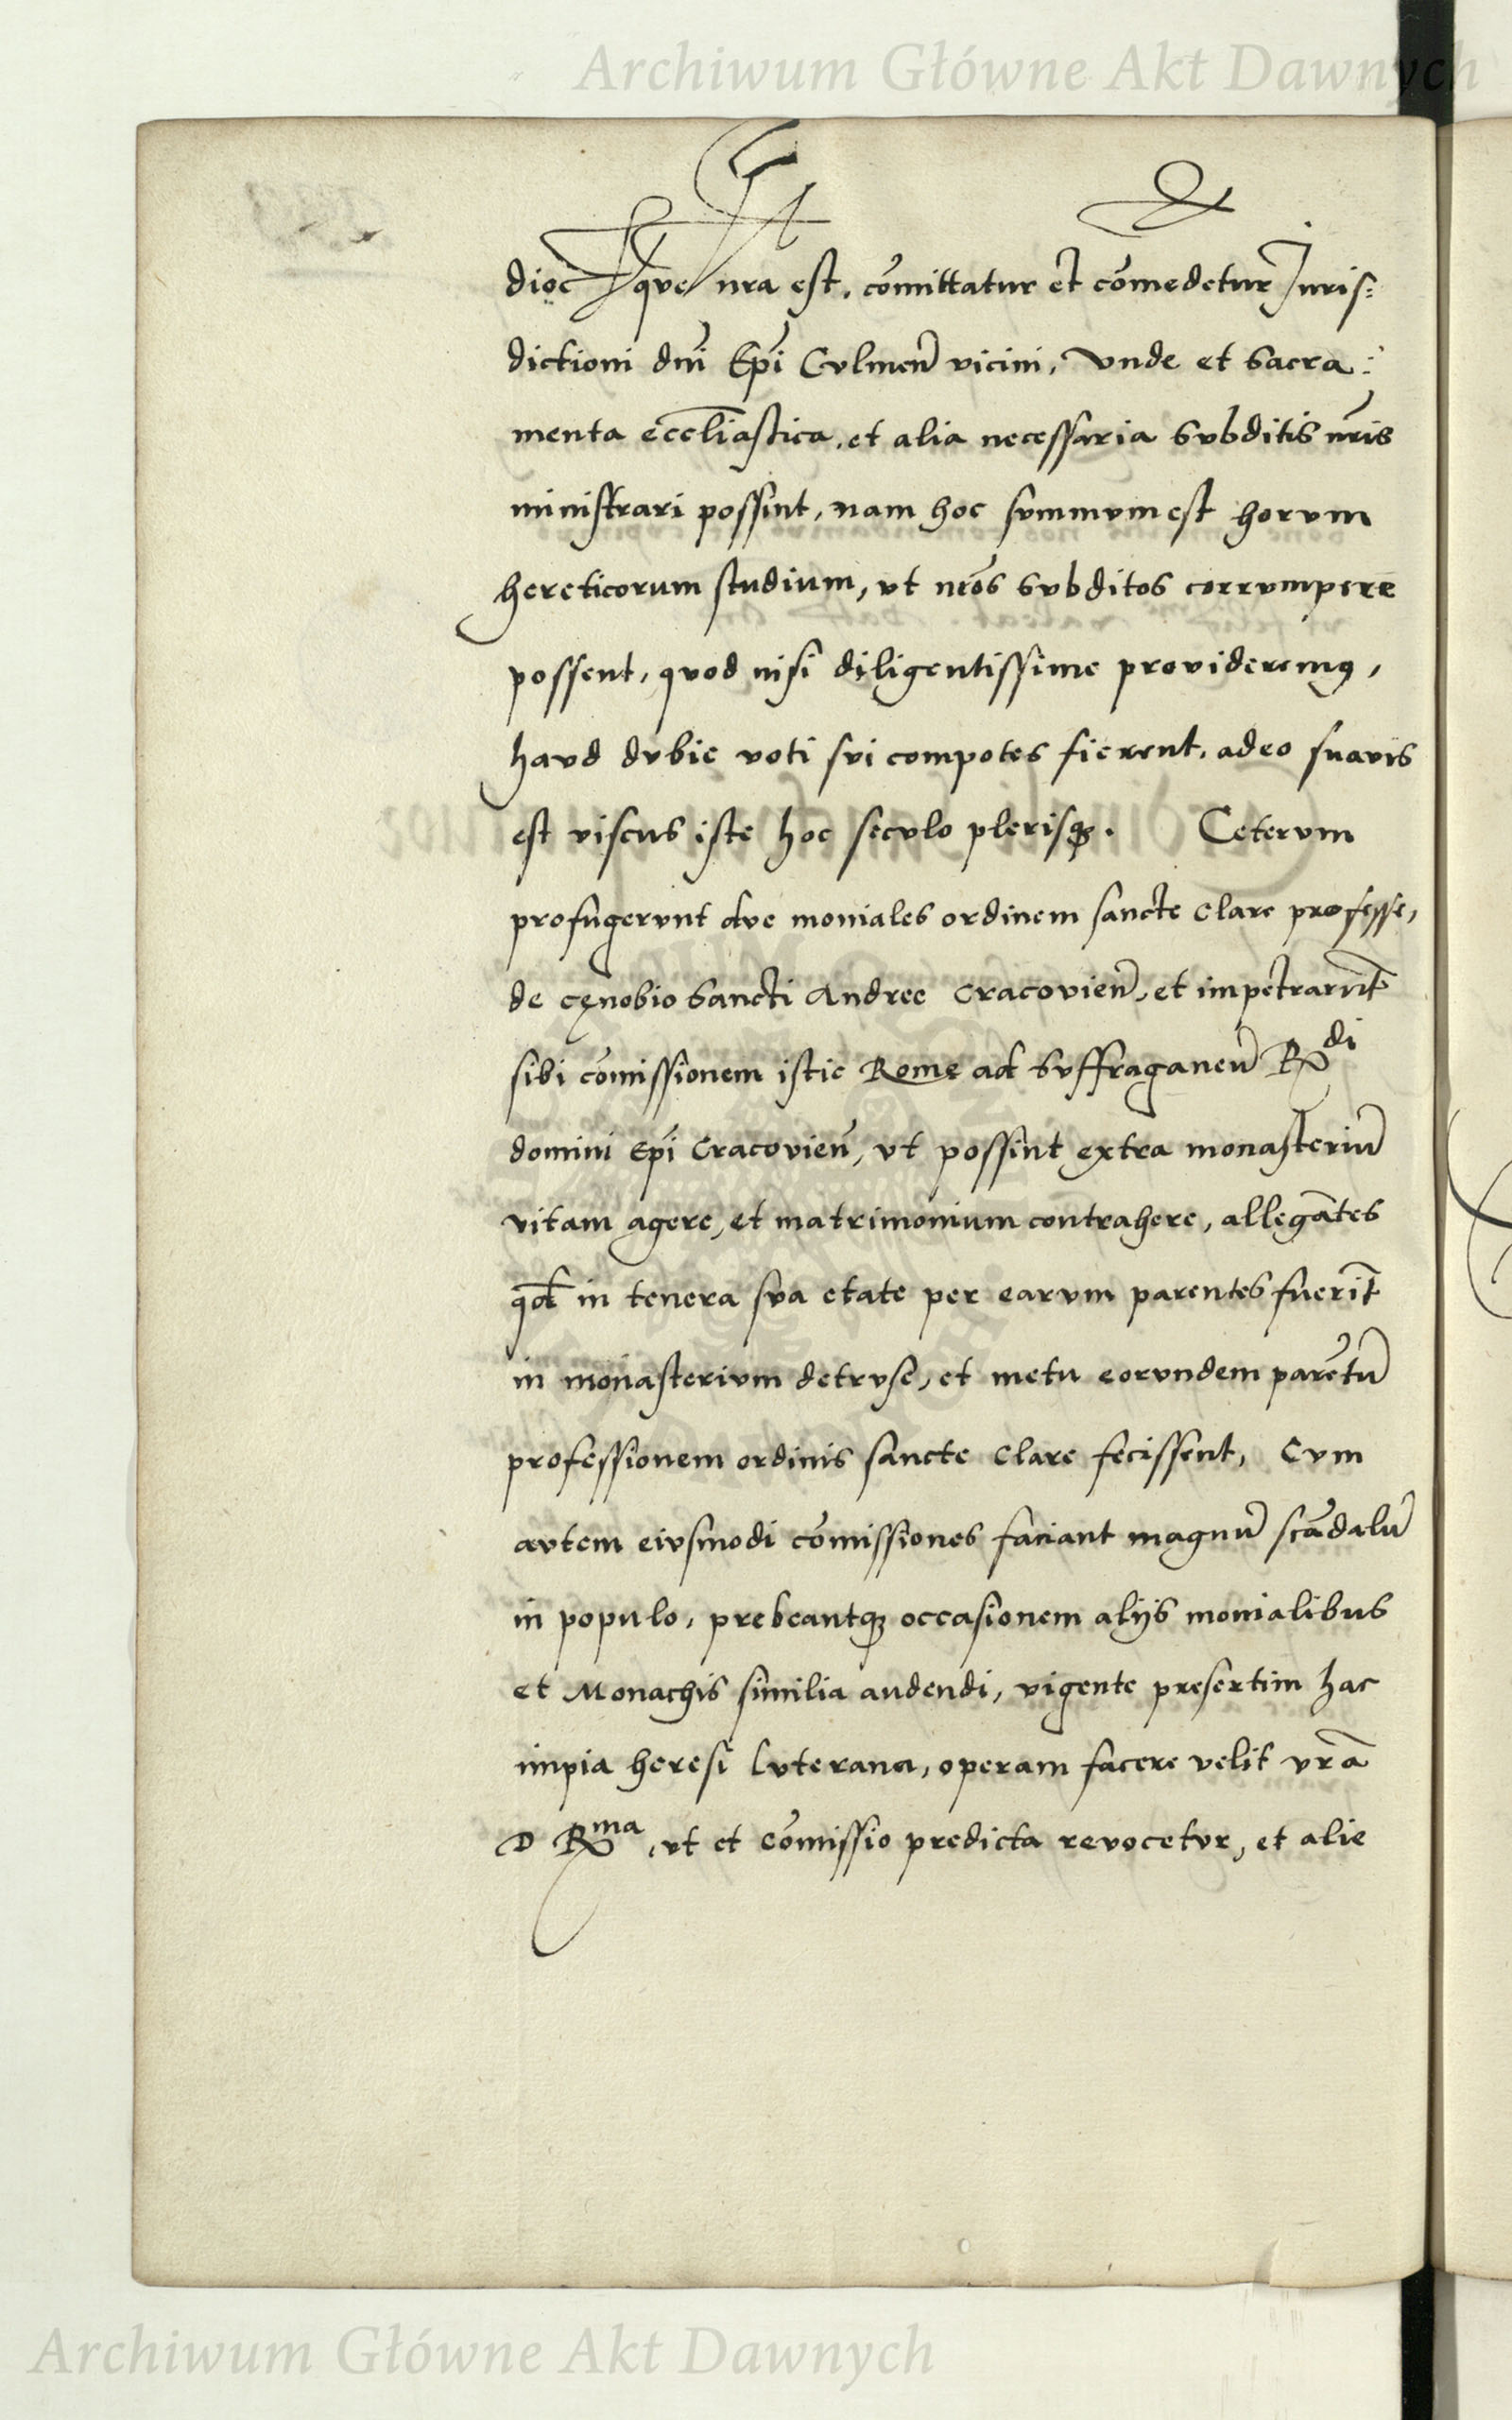 Archiwum Główne Akt Dawnych
dioc̄ que nr̄a est, com̄ittatur et com̄edetur Juris:
dictioni dn̄i Epī Culmen̄ vicini, Vnde et sacra:
menta ecclīastica, et alia necessaria subditis nr̄is
ministrari possint, nam hoc summum est horum
hereticorum studium, vt nr̄os subditos corrumpere
possent, quod nisi diligentissime prouideremus,
haud dubie voti sui compotes fierent, adeo suauis
est viscus iste hoc seculo plerisq₃. Ceterum
profugerunt due moniales ordinem sancte Clare professe,
de cęnobio sancti Andree Cracovien̄, et impetrarun̄t
sibi com̄issionem istic Romę ad suffraganeū R^di
domini Epī Cracovien̄, vt possint extra monasteriū
vitam agere, et matrimonium contrahere, allegātes
qd̄ in tenera sua etate per earum parentes fuerīt
in monasterium detruse, et metu eorundem parētū
professionem ordinis sancte Clare fecissent, Cum
autem eiusmodi com̄issiones faciant magnū scādalū
in populo, prebeantq₃ occasionem alijs monialibus
et Monachis similia audendi, vigente presertim hac
impia heresi luterana, operam facere velit vrā
D R^ma, vt et com̄issio predicta reuocetur, et alie
Archiwum Główne Akt Dawnych